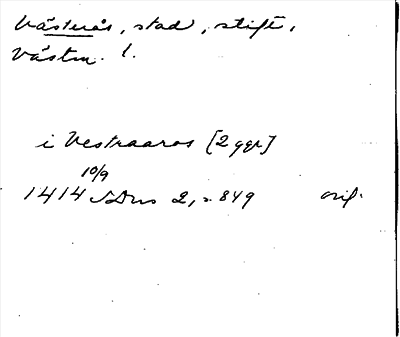 Västerås, stad, stift,
Västm. l.
i Vestraaros [2 ggr]
10/9
1414 SDns 2, s. 849 orig.